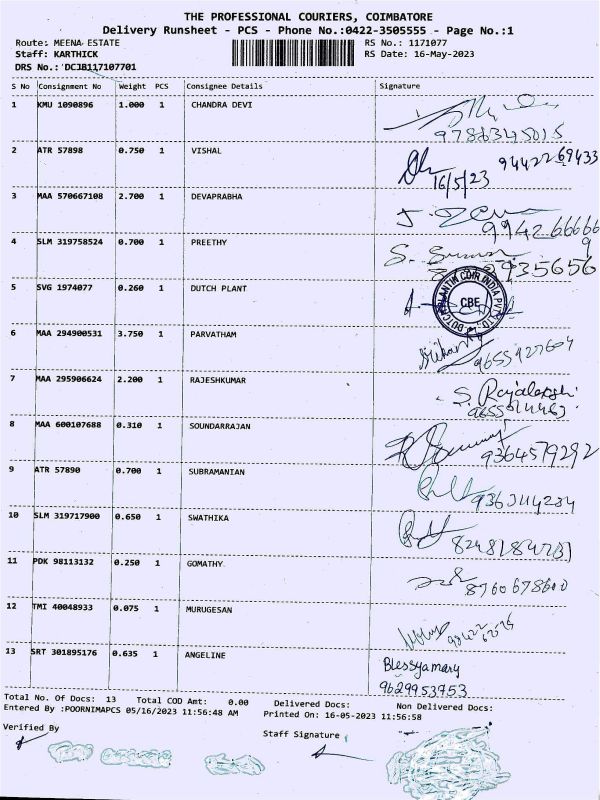 THE PROFESSIONAL COURIERS, COIMBATORE
Delivery Runsheet - PCS - Phone No.:0422-3505555 - Page No.:1
Route: MEENA ESTATE RS No.: 1171077
Staff: KARTHICK RS Date: 16-May-2023
DRS No.: DCJB117107701
S No Consignment No Weight PCS Consignee Details Signature
1 KMU 1090896 1.000 1 CHANDRA DEVI
9786345015
2 ATR 57898 0.750 1 VISHAL 9442269433
16/5/23
3 MAA 570667108 2.700 1 DEVAPRABHA
9942666669
4 SLM 319758524 0.700 1 PREETHY
5 SVG 1974077 0.260 1 DUTCH PLANT
DUTCH PLANTIN COIR INDIA PVT LTD
CBE
6 MAA 294900531 3.750 1 PARVATHAM
9655927604
7 MAA 295906624 2.200 1 RAJESHKUMAR
8 MAA 600107688 0.310 1 SOUNDARRAJAN
9364579292
9 ATR 57890 0.700 1 SUBRAMANIAN
10 SLM 319717900 0.650 1 SWATHIKA
11 PDK 98113132 0.250 1 GOMATHY
8760678600
12 TMI 40048933 0.075 1 MURUGESAN
13 SRT 301895176 0.635 1 ANGELINE Blessyamary
9629953753
Total No. Of Docs: 13 Total COD Amt: 0.00 Delivered Docs: Non Delivered Docs:
Entered By :POORNIMAPCS 05/16/2023 11:56:48 AM Printed On: 16-05-2023 11:56:58
Verified By Staff Signature